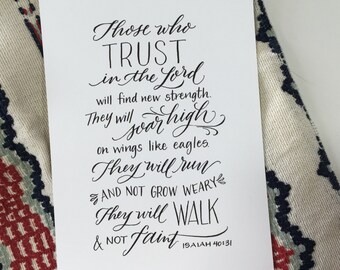 Those who
TRUST
in the Lord
will find new strength.
They will soar high
on wings like eagles.
They will run
AND NOT GROW WEARY
They will WALK
& NOT faint
ISAIAH 40:31